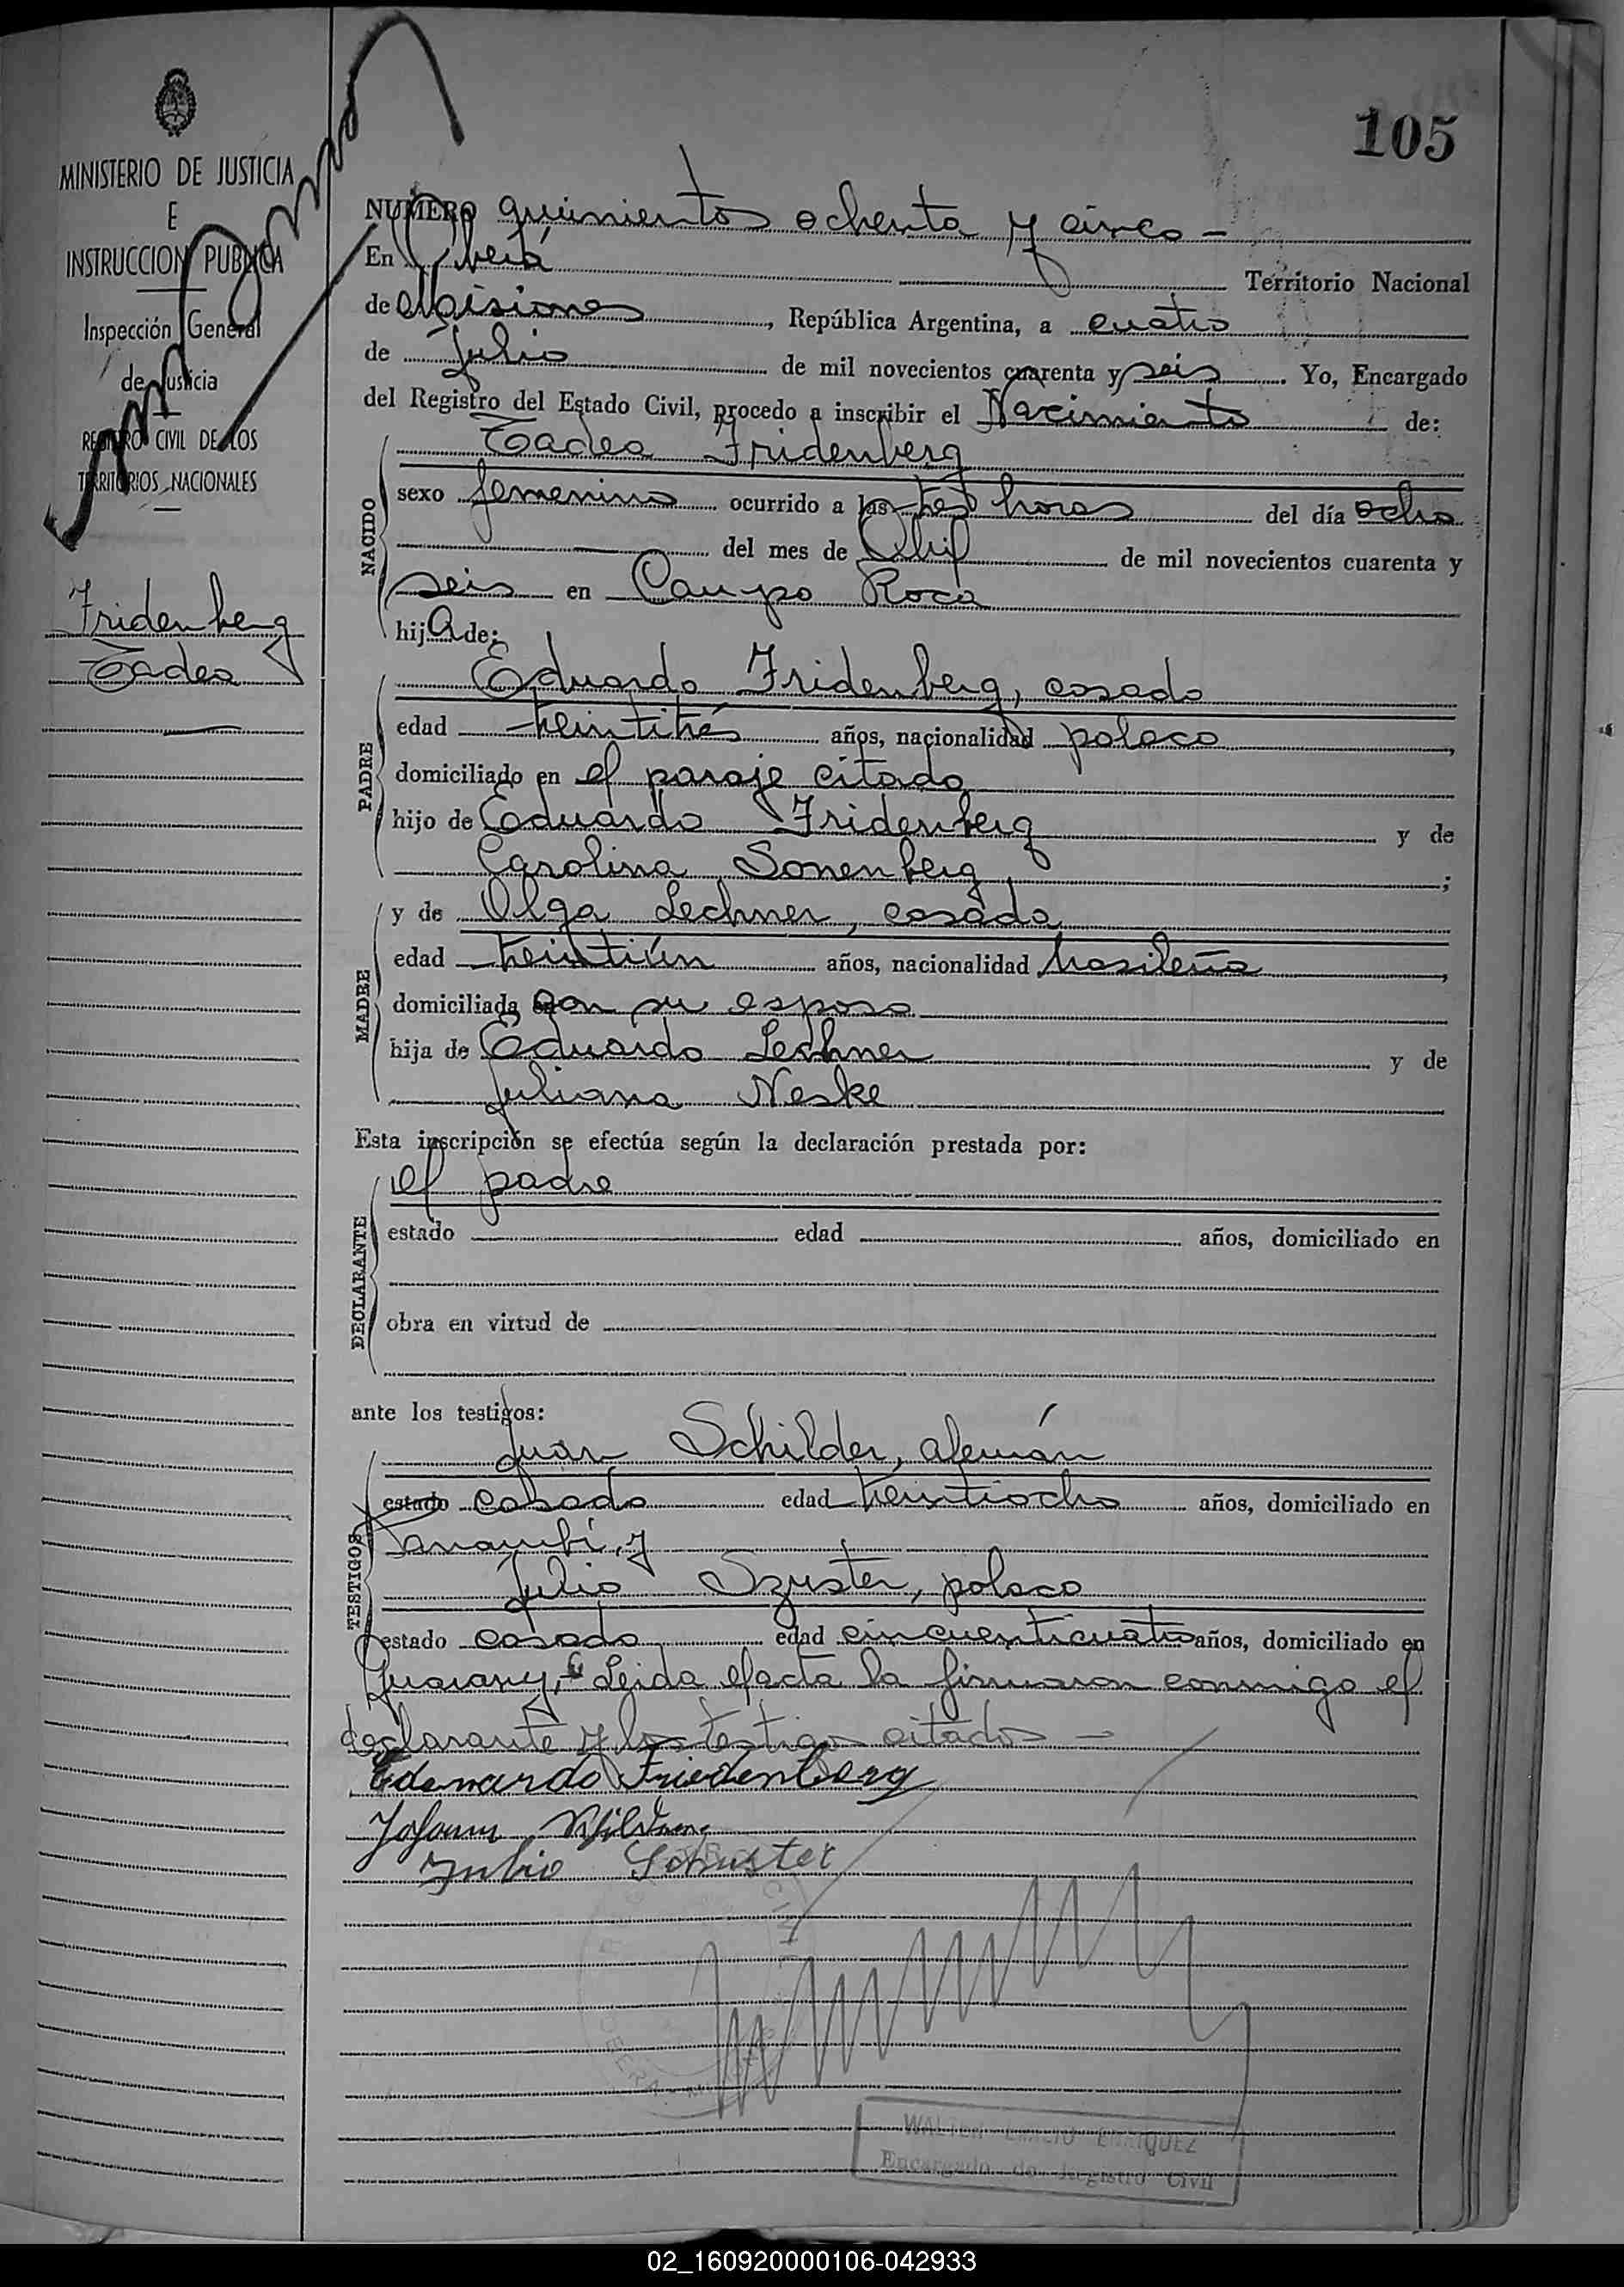 105
MINISTERIO DE JUSTICIA
E
INSTRUCCION PUBLICA
Inspección General
de Justicia
REGISTRO CIVIL DE LOS
TERRITORIOS NACIONALES
Fridenberg
Tadea
NUMERO quinientos ochenta y cinco -
En Oberá Territorio Nacional
de Misiones, República Argentina, a cuatro
de Julio de mil novecientos cuarenta y seis. Yo, Encargado
del Registro del Estado Civil, procedo a inscribir el Nacimiento de:
Tadea Fridenberg
NACIDO
sexo femenino ocurrido a las tres horas del día ocho
del mes de Abril de mil novecientos cuarenta y
seis en Campo Roca
hija de:
Eduardo Fridenberg, casado
PADRE
edad treintitrés años, nacionalidad polaco,
domiciliado en el paraje citado
hijo de Eduardo Fridenberg y de
Carolina Sonenberg;
y de Olga Lechner, casada
MADRE
edad treintiún años, nacionalidad brasileña,
domiciliada con su esposo
hija de Eduardo Lechner y de
Juliana Neske
Esta inscripción se efectúa según la declaración prestada por:
el padre
DECLARANTE
estado edad años, domiciliado en
obra en virtud de
ante los testigos:
Juan Schilder, alemán
TESTIGOS
estado casado edad treintiocho años, domiciliado en
Panambí, y
Julio Szuster, polaco
estado casado edad cincuenticuatro años, domiciliado en
Guarany, - Leida el acta la firmaron conmigo el
declarante y los testigos citados -
Edewardo Friedenberg
Johann
Julio Schuster
WALTER EMILIO ENRIQUEZ
Encargado de Registro Civil
02_160920000106-042933